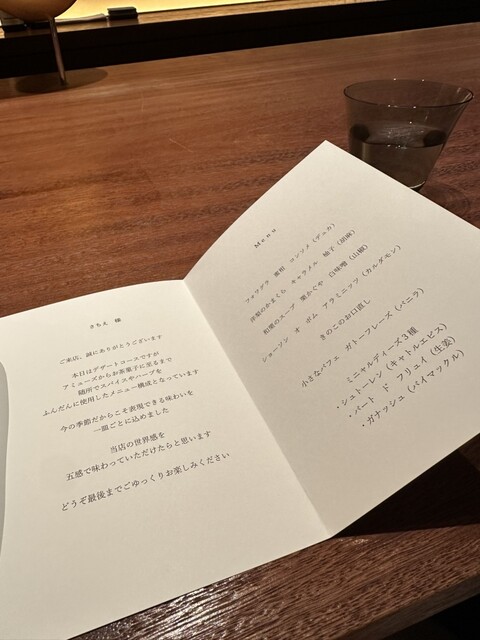 きちえ 様
ご来店、誠にありがとうございます
本日はデザートコースですが
アミューズからお茶菓子に至るまで
随所でスパイスやハーブを
ふんだんに使用したメニュー構成となっています
今の季節だからこそ表現できる味わいを
一皿ごとに込めました
当店の世界感を
五感で味わっていただけたらと思います
どうぞ最後までごゆっくりお楽しみください
Menu
フォワグラ 蜜柑 コンソメ（デュカ）
洋梨のかまくら キャラメル 柚子（胡麻）
和栗のスープ 栗かぐや 白味噌（山椒）
ショーソン オ ポム アラミニッツ（カルダモン）
きのこのお口直し
小さなパフェ ガトーフレーズ（バニラ）
ミニャルディーズ３種
・シュトーレン（キャトルエピス）
・パート ド フリュイ（生姜）
・ガナッシュ（バイマックル）